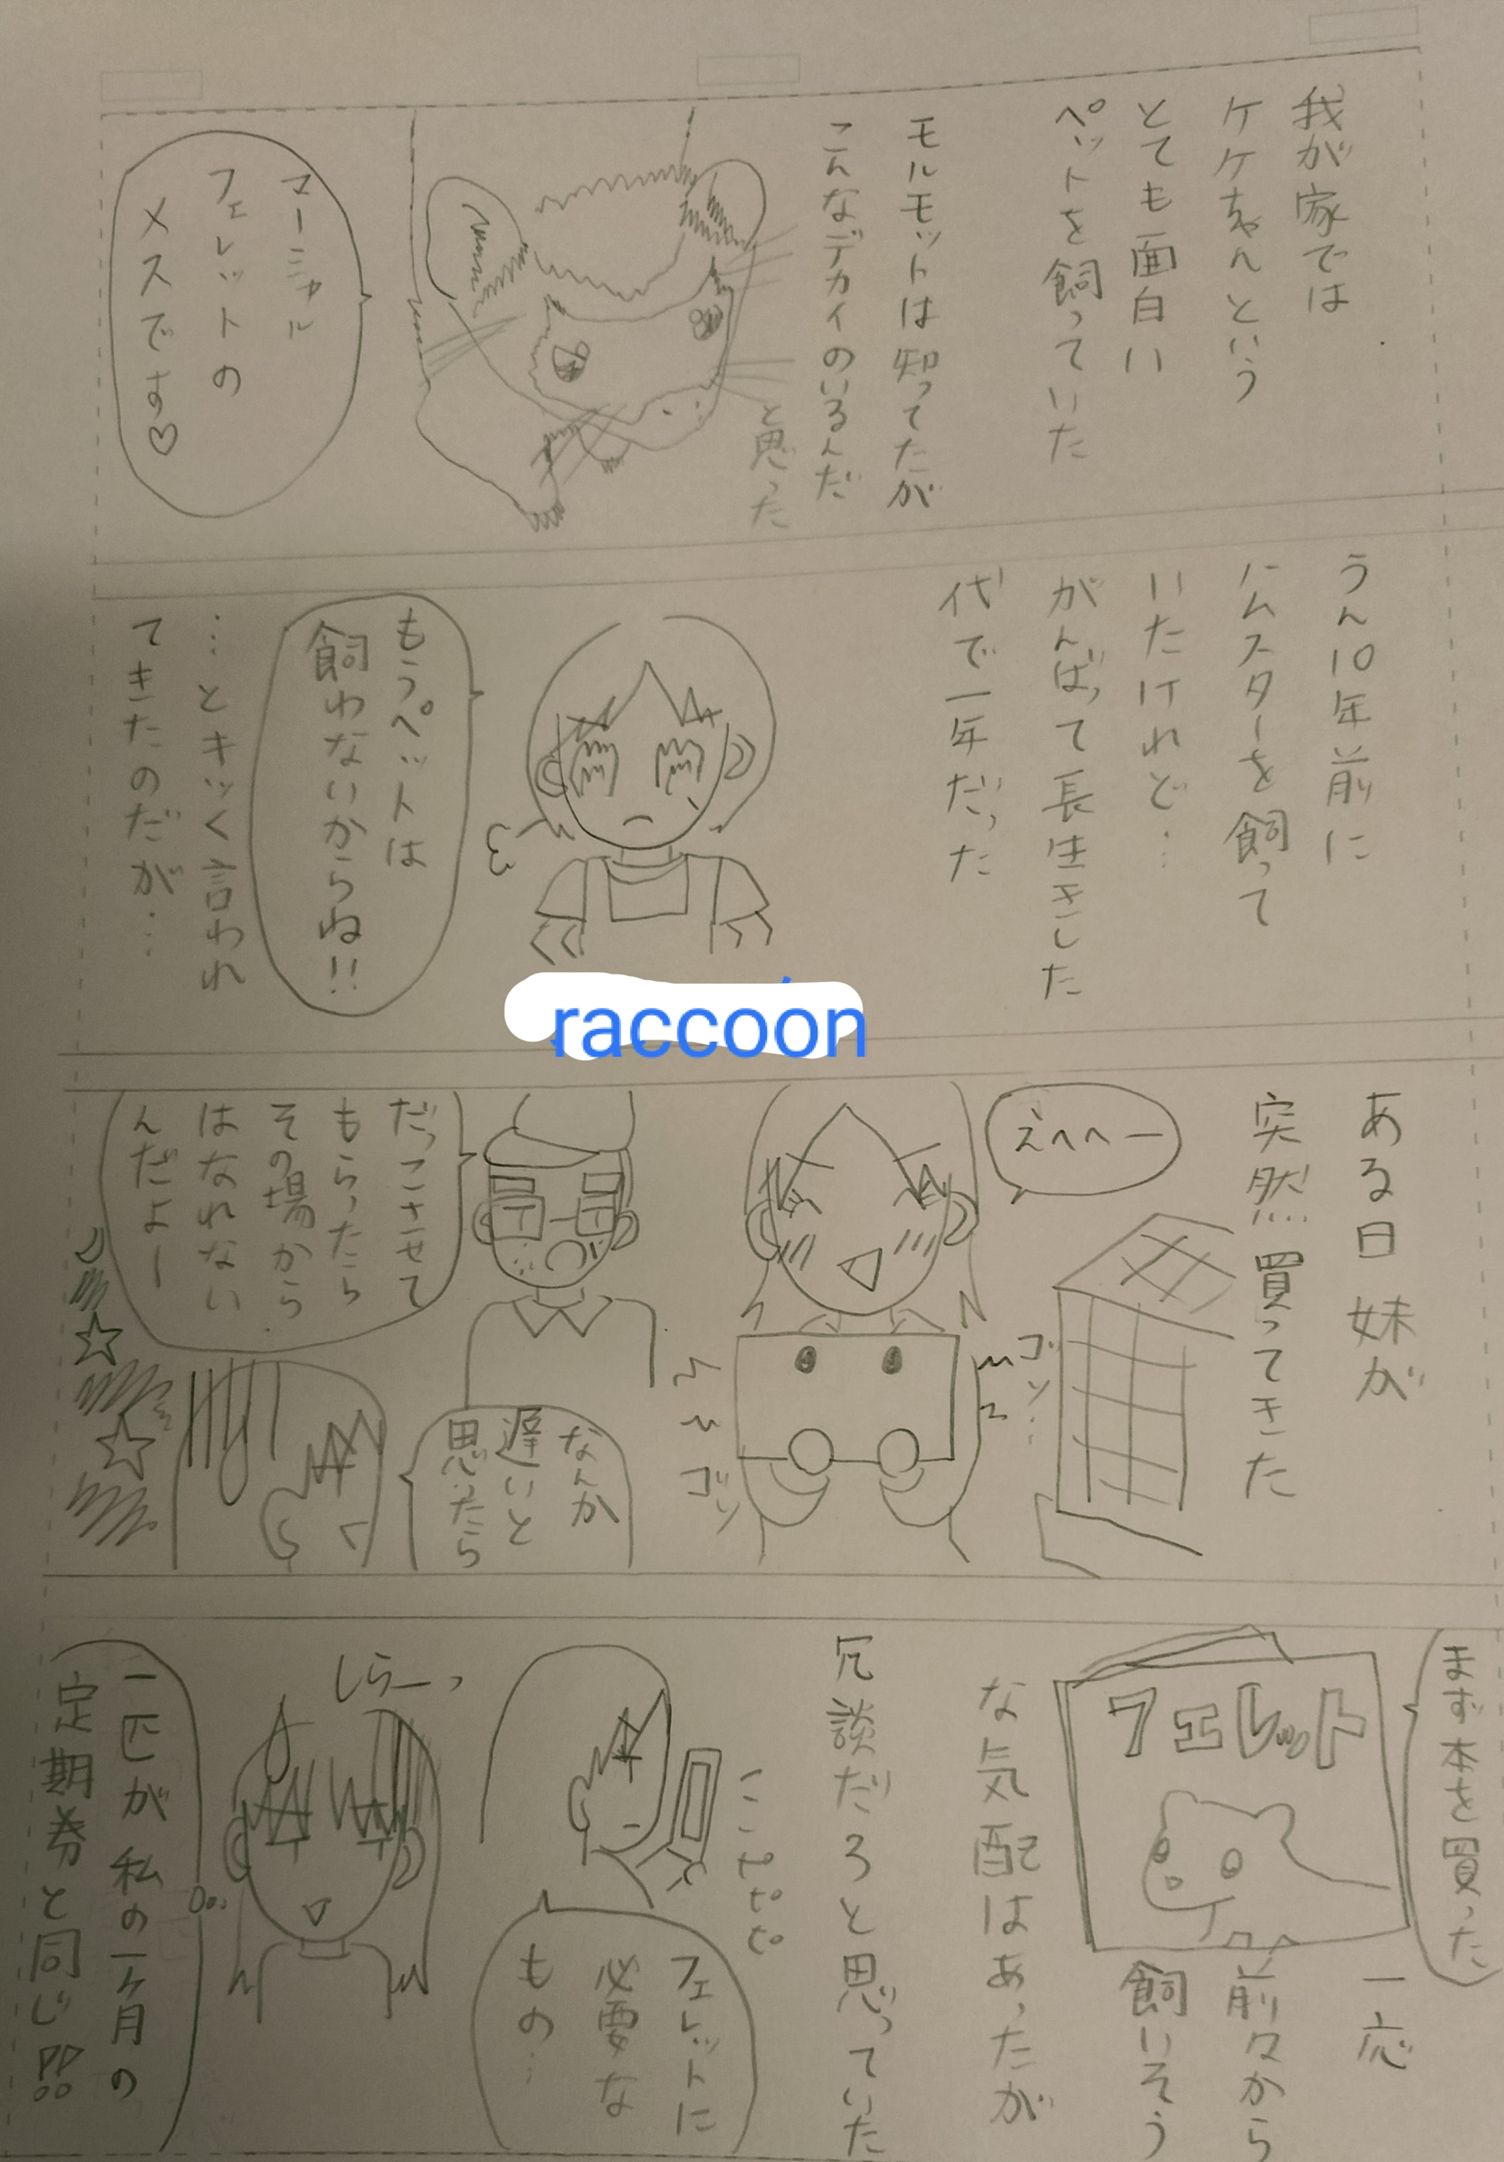 我が家では
ケケちゃんという
とても面白い
ペットを飼っていた
モルモットは知ってたが
こんなデカイのいるんだ
と思った
マーシャル
フェレットの
メスです♡
うん10年前に
ハムスターを飼って
いたけれど…
がんばって長生きした
代で一年だった
もうペットは
飼わないからね!!
…とキツく言われ
てきたのだが…
raccoon
ある日妹が
突然買ってきた
えへへー
ゴソ…
ゴソ
だっこさせて
もらったら
その場から
はなれない
んだよー
なんか
遅いと
思ったら
まず本を買った
フェレット
一応
前々から
飼いそう
な気配はあったが
冗談だろと思っていた
フェレットに
必要な
もの…
しらーっ
一匹が私の一ヶ月の
定期券と同じ!!